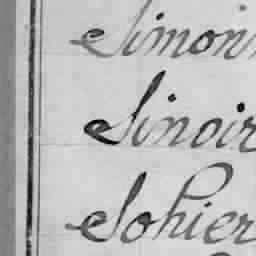 Simon
Sinoir
Sohier